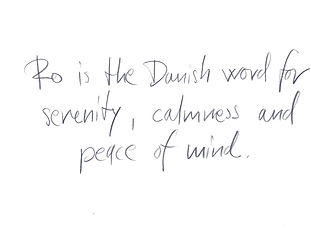 Ro is the Danish word for
serenity, calmness and
peace of mind.